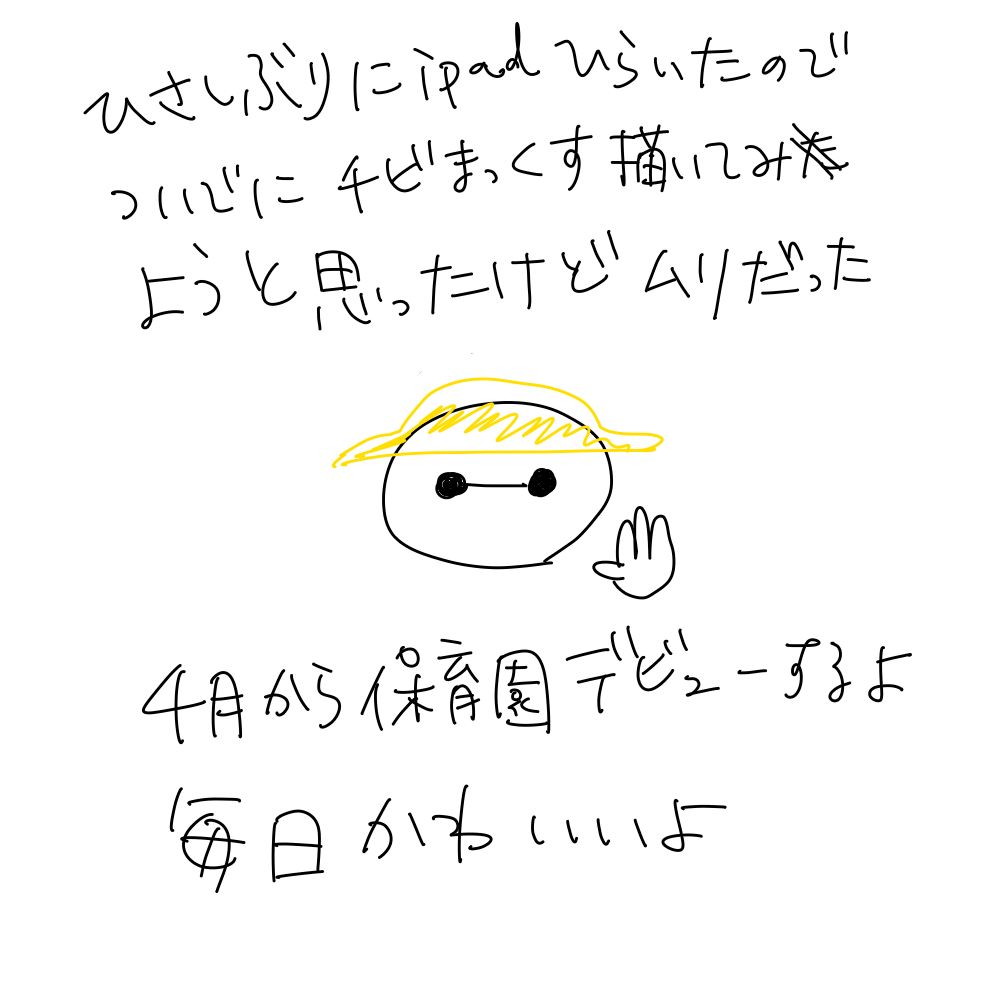 ひさしぶりにipadひらいたので
ついでにチビまっくす描いてみ
ようと思ったけどムリだった
4月から保育園デビューするよ
毎日かわいいよ